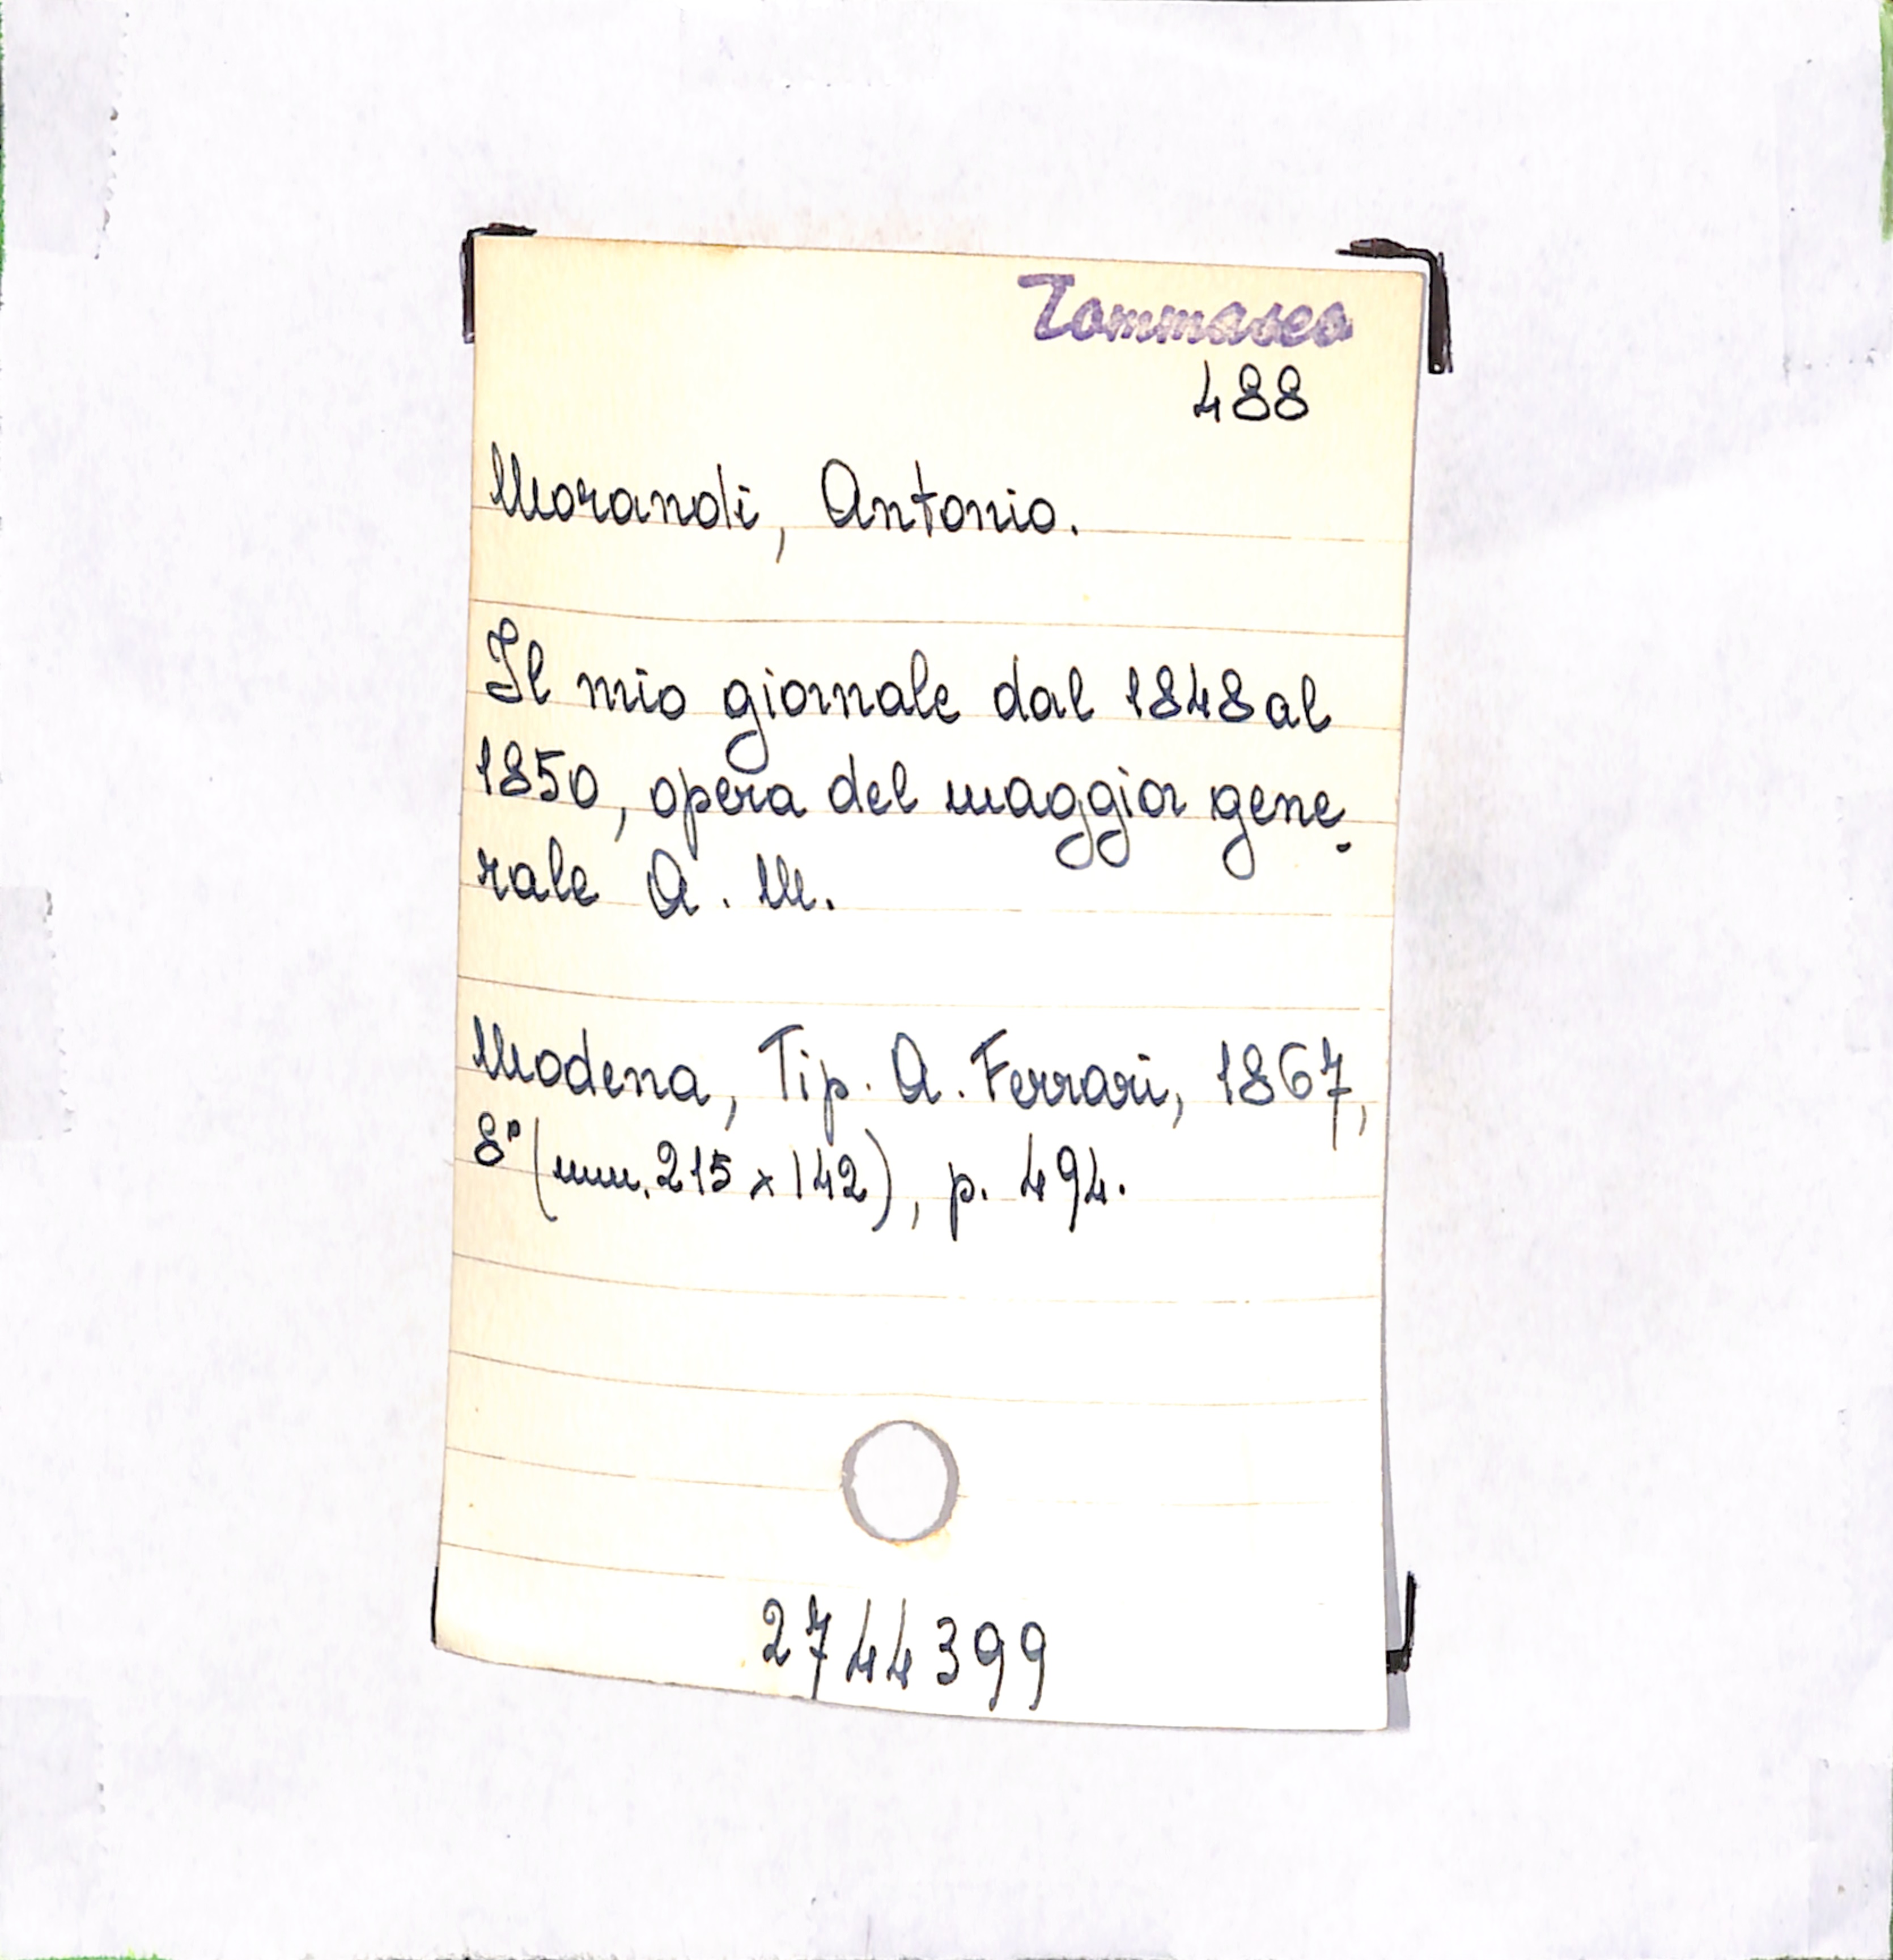 Tommaseo
488
Morandi, Antonio.
Il mio giornale dal 1848 al
1850, opera del maggior gene-
rale A. M.
Modena, Tip. A. Ferrari, 1867,
8° (mm. 215 x 142), p. 494.
2744399